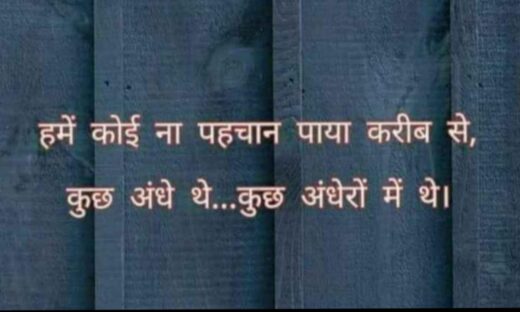 हमें कोई ना पहचान पाया करीब से,
कुछ अंधे थे...कुछ अंधेरों में थे।